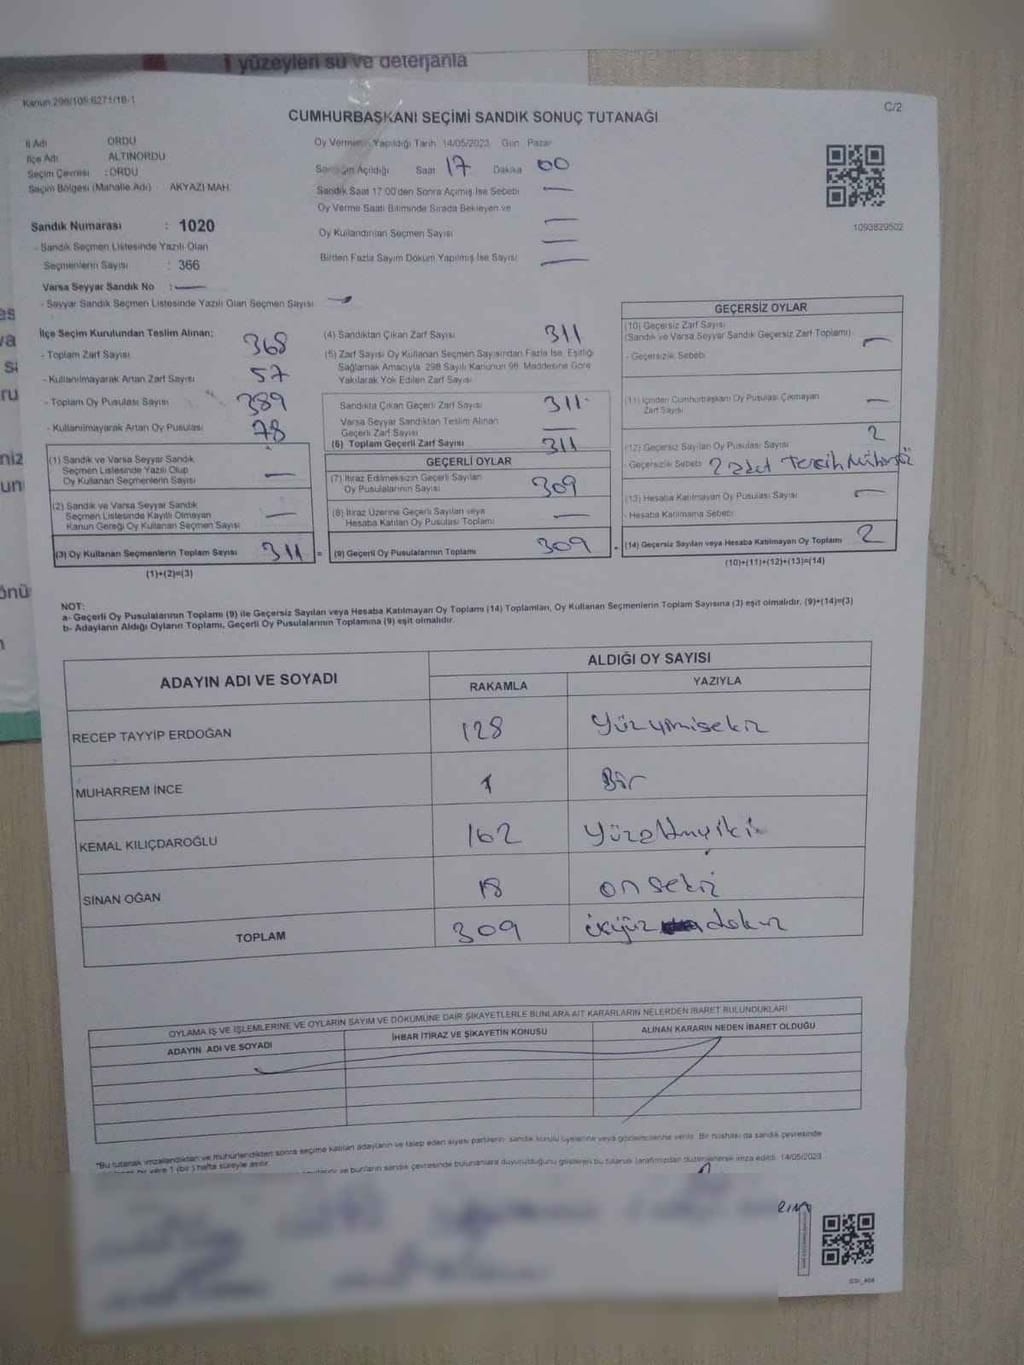 yüzeyleri su ve deterjanla
Kanun 298/105 6271/18-1
C/2
CUMHURBAŞKANI SEÇİMİ SANDIK SONUÇ TUTANAĞI
İl Adı ORDU
İlçe Adı ALTINORDU
Seçim Çevresi : ORDU
Seçim Bölgesi (Mahalle Adı) AKYAZI MAH.
Oy Vermenin Yapıldığı Tarih 14/05/2023 Gün Pazar
Sandığın Açıldığı Saat 17 Dakika 00
Sandık Saat 17:00'den Sonra Açılmış İse Sebebi —
Oy Verme Saati Bitiminde Sırada Bekleyen ve
Oy Kullandırılan Seçmen Sayısı —
Birden Fazla Sayım Döküm Yapılmış İse Sayısı —
1093829502
Sandık Numarası : 1020
- Sandık Seçmen Listesinde Yazılı Olan
Seçmenlerin Sayısı : 366
Varsa Seyyar Sandık No : —
- Seyyar Sandık Seçmen Listesinde Yazılı Olan Seçmen Sayısı —
İlçe Seçim Kurulundan Teslim Alınan;
- Toplam Zarf Sayısı 368
- Kullanılmayarak Artan Zarf Sayısı 57
- Toplam Oy Pusulası Sayısı 389
- Kullanılmayarak Artan Oy Pusulası 78
(1) Sandık ve Varsa Seyyar Sandık
Seçmen Listesinde Yazılı Olup
Oy Kullanan Seçmenlerin Sayısı —
(2) Sandık ve Varsa Seyyar Sandık
Seçmen Listesinde Kayıtlı Olmayan
Kanun Gereği Oy Kullanan Seçmen Sayısı —
(3) Oy Kullanan Seçmenlerin Toplam Sayısı 311 =
(1)+(2)=(3)
(4) Sandıktan Çıkan Zarf Sayısı 311
(5) Zarf Sayısı Oy Kullanan Seçmen Sayısından Fazla İse, Eşitliği
Sağlamak Amacıyla 298 Sayılı Kanunun 98. Maddesine Göre
Yakılarak Yok Edilen Zarf Sayısı
Sandıkta Çıkan Geçerli Zarf Sayısı 311
Varsa Seyyar Sandıktan Teslim Alınan
Geçerli Zarf Sayısı —
(6) Toplam Geçerli Zarf Sayısı 311
GEÇERLİ OYLAR
(7) İtiraz Edilmeksizin Geçerli Sayılan
Oy Pusulalarının Sayısı 309
(8) İtiraz Üzerine Geçerli Sayılan veya
Hesaba Katılan Oy Pusulası Toplamı —
(9) Geçerli Oy Pusulalarının Toplamı 309
GEÇERSİZ OYLAR
(10) Geçersiz Zarf Sayısı
(Sandık ve Varsa Seyyar Sandık Geçersiz Zarf Toplamı) —
- Geçersizlik Sebebi
(11) İçinden Cumhurbaşkanı Oy Pusulası Çıkmayan
Zarf Sayısı —
(12) Geçersiz Sayılan Oy Pusulası Sayısı 2
- Geçersizlik Sebebi 2 adet Tercih Mührsüz
(13) Hesaba Katılmayan Oy Pusulası Sayısı —
- Hesaba Katılmama Sebebi
(14) Geçersiz Sayılan veya Hesaba Katılmayan Oy Toplamı 2
(10)+(11)+(12)+(13)=(14)
NOT:
a- Geçerli Oy Pusulalarının Toplamı (9) ile Geçersiz Sayılan veya Hesaba Katılmayan Oy Toplamı (14) Toplamları, Oy Kullanan Seçmenlerin Toplam Sayısına (3) eşit olmalıdır. (9)+(14)=(3)
b- Adayların Aldığı Oyların Toplamı, Geçerli Oy Pusulalarının Toplamına (9) eşit olmalıdır.
ADAYIN ADI VE SOYADI
ALDIĞI OY SAYISI
RAKAMLA YAZIYLA
RECEP TAYYİP ERDOĞAN 128 Yüzyirmisekiz
MUHARREM İNCE 1 Bir
KEMAL KILIÇDAROĞLU 162 Yüzaltmışiki
SİNAN OĞAN 18 onsekiz
TOPLAM 309 üçyüz dokuz
OYLAMA İŞ VE İŞLEMLERİNE VE OYLARIN SAYIM VE DÖKÜMÜNE DAİR ŞİKAYETLERLE BUNLARA AİT KARARLARIN NELERDEN İBARET BULUNDUKLARI
ADAYIN ADI VE SOYADI İHBAR İTİRAZ VE ŞİKAYETİN KONUSU ALINAN KARARIN NEDEN İBARET OLDUĞU
"Bu tutanak imzalandıktan ve mühürlendikten sonra seçime katılan adayların ve talep eden siyasi partilerin sandık kurulu üyelerine veya gözlemcilerine verilir. Bir nüshası da sandık çevresinde
1 (bir) hafta süreyle asılır.
ve bunların sandık çevresinde bulunanlara duyurulduğunu gösteren bu tutanak tarafımızdan düzenlenerek imza edildi. 14/05/2023